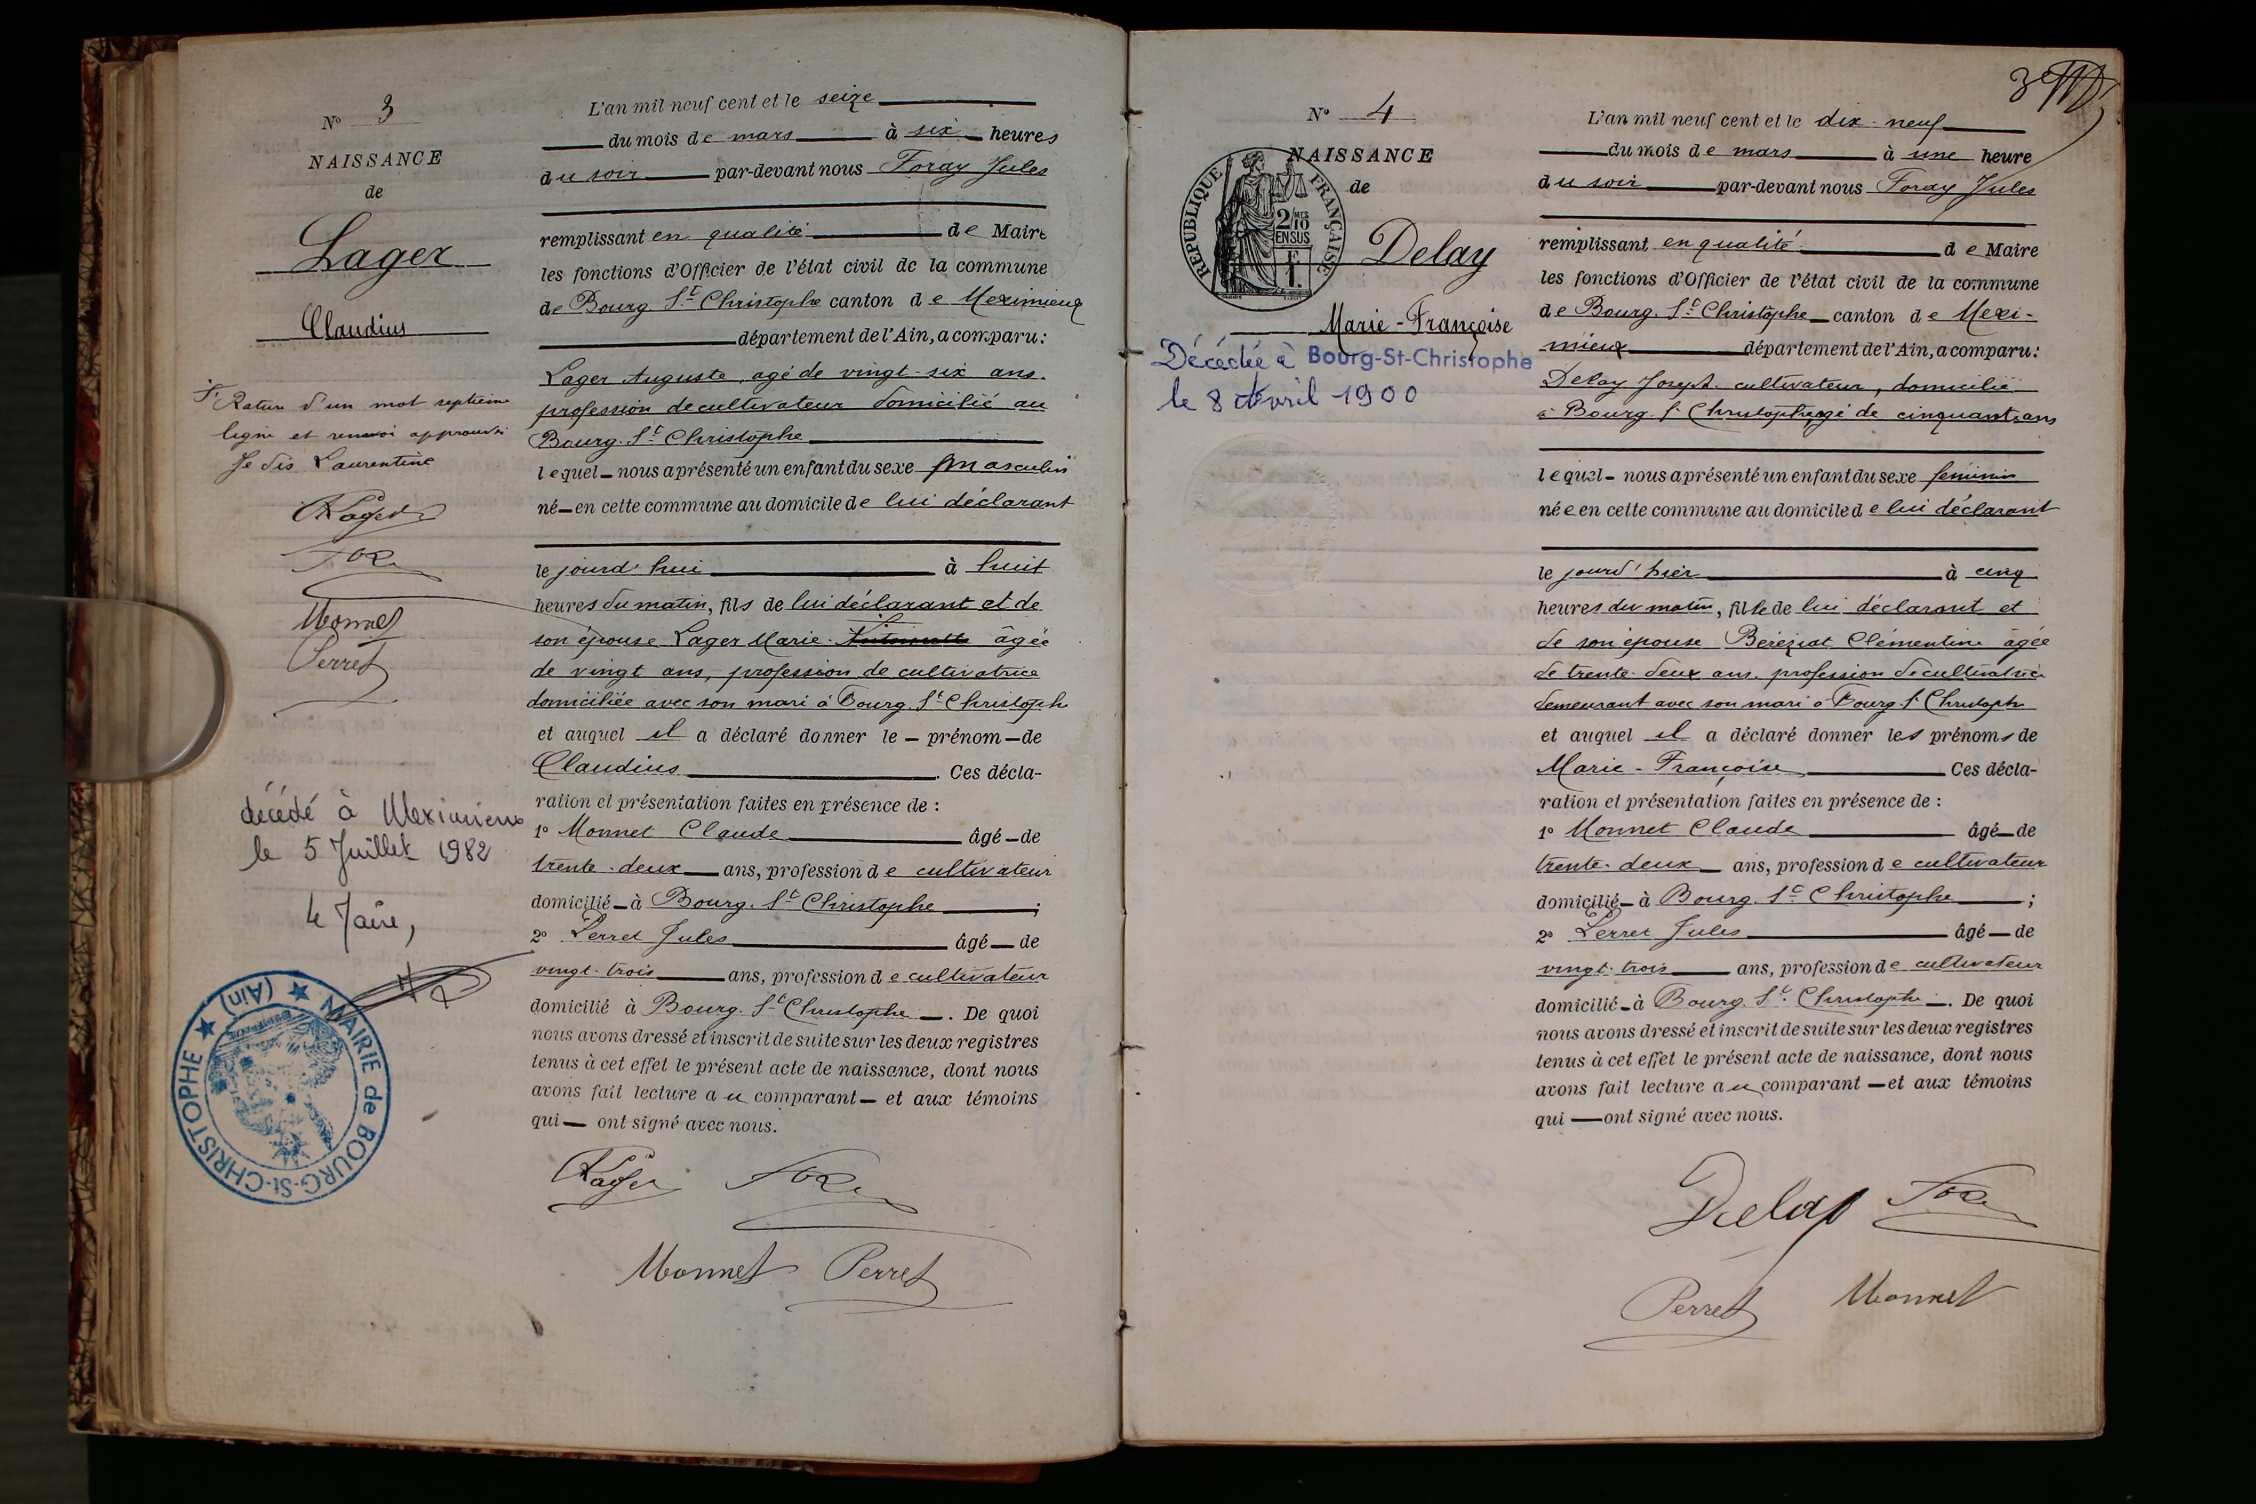 N° 3
NAISSANCE
de
Lager
Claudius
Rature d'un mot septième
ligne et renvoi approuvés
Je dis Laurentine
Lager
Monnet
Perret
décédé à Meximieux
le 5 Juillet 1982
le Maire,
MAIRIE de BOURG-St-CHRISTOPHE ★ (Ain) ★
L'an mil neuf cent et le seize
du mois de mars à six heures
du soir par-devant nous Foray Jules
remplissant en qualité de Maire
les fonctions d'Officier de l'état civil de la commune
de Bourg St Christophe canton de Meximieux
département de l'Ain, a comparu :
Lager Auguste, agé de vingt-six ans.
profession de cultivateur domicilié au
Bourg St Christophe
lequel nous a présenté un enfant du sexe masculin
né en cette commune au domicile de lui déclarant
le jourd'hui à huit
heures du matin, fils de lui déclarant et de
son épouse Lager Marie âgée
de vingt ans, profession de cultivatrice
domiciliée avec son mari à Bourg St Christophe
et auquel il a déclaré donner le prénom de
Claudius. Ces décla-
ration et présentation faites en présence de :
1° Monnet Claude âgé de
trente-deux ans, profession de cultivateur
domicilié à Bourg St Christophe ;
2° Perret Jules âgé de
vingt-trois ans, profession de cultivateur
domicilié à Bourg St Christophe. De quoi
nous avons dressé et inscrit de suite sur les deux registres
tenus à cet effet le présent acte de naissance, dont nous
avons fait lecture au comparant et aux témoins
qui ont signé avec nous.
Lager
Monnet Perret
3
N° 4
NAISSANCE
de
RÉPUBLIQUE FRANÇAISE
2/10 MES
EN SUS
1 F
Delay
Marie-Françoise
Décédée à Bourg-St-Christophe
le 8 Avril 1900
L'an mil neuf cent et le dix-neuf
du mois de mars à une heure
du soir par-devant nous Foray Jules
remplissant en qualité de Maire
les fonctions d'Officier de l'état civil de la commune
de Bourg St Christophe canton de Mexi-
mieux département de l'Ain, a comparu :
Delay Joseph cultivateur, domicilié
à Bourg St Christophe, agé de cinquante ans
lequel nous a présenté un enfant du sexe féminin
née en cette commune au domicile de lui déclarant
le jourd'hier à cinq
heures du matin, fille de lui déclarant et
de son épouse Béréziat Clémentine âgée
de trente-deux ans, profession de cultivatrice
demeurant avec son mari à Bourg St Christophe
et auquel il a déclaré donner les prénoms de
Marie-Françoise Ces décla-
ration et présentation faites en présence de :
1° Monnet Claude âgé de
trente-deux ans, profession de cultivateur
domicilié à Bourg St Christophe ;
2° Perret Jules âgé de
vingt-trois ans, profession de cultivateur
domicilié à Bourg St Christophe. De quoi
nous avons dressé et inscrit de suite sur les deux registres
tenus à cet effet le présent acte de naissance, dont nous
avons fait lecture au comparant et aux témoins
qui ont signé avec nous.
Delay
Perret Monnet